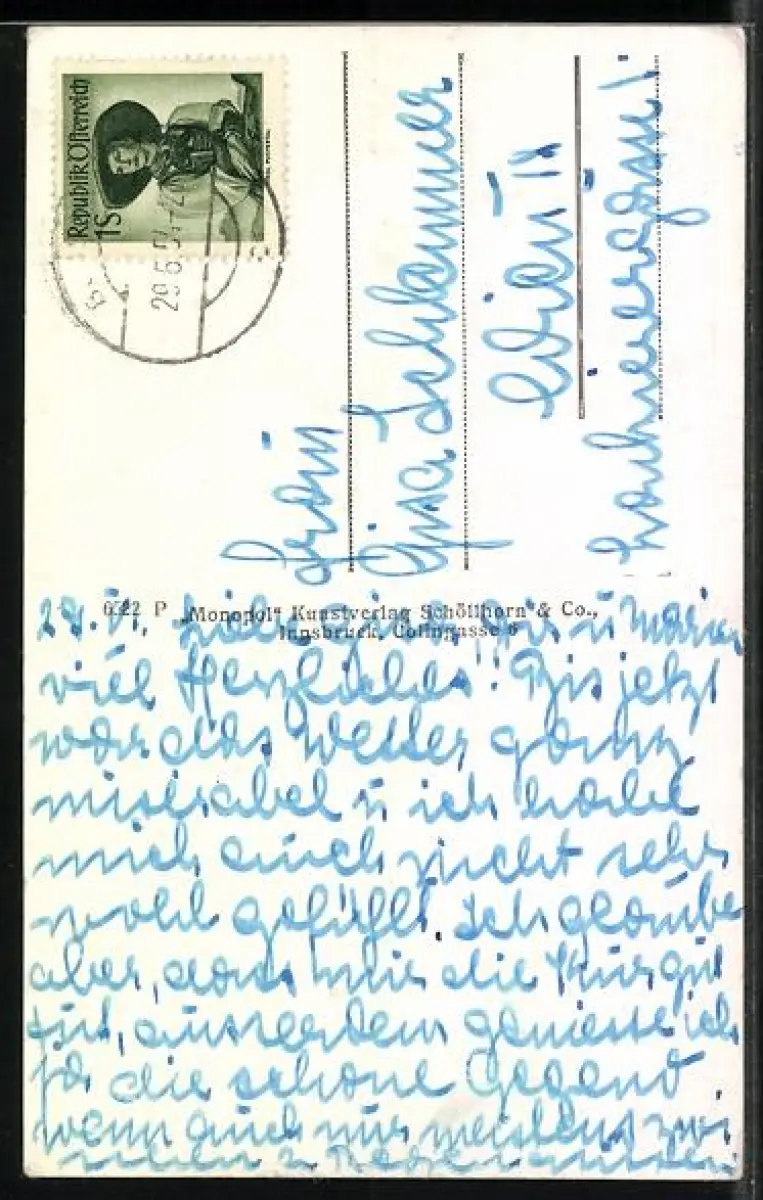 Republik Österreich
1S
29.6.5
Frau
Gisa
Wien 18
6322 P „Monopol“ Kunstverlag Schöllhorn & Co.,
Innsbruck, Colingasse 6
29. VI. Liebe Gisa, Dir u Maria
viel Herzliches! Bis jetzt
war das Wetter ganz
miserabel u ich habe
mich auch nicht sehr
wohl gefühlt. Ich glaube
aber, dass mir die Kur gut
tut, ausserdem geniesse ich
ja die schöne Gegend
wenn auch nur meistens zwi